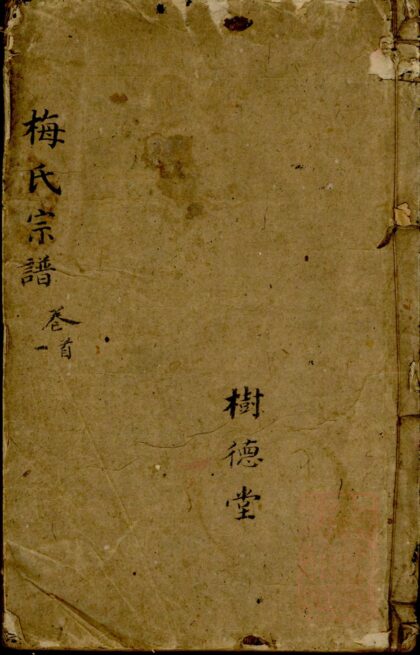 梅氏宗譜
卷首
一
樹德堂